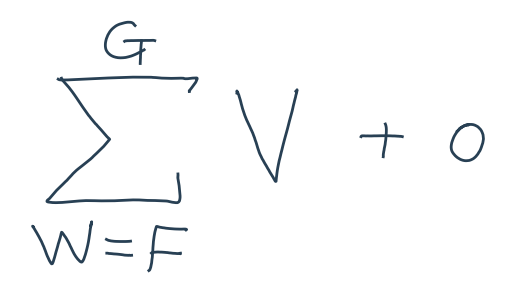 \sum_{W=F}^{G} V + 0